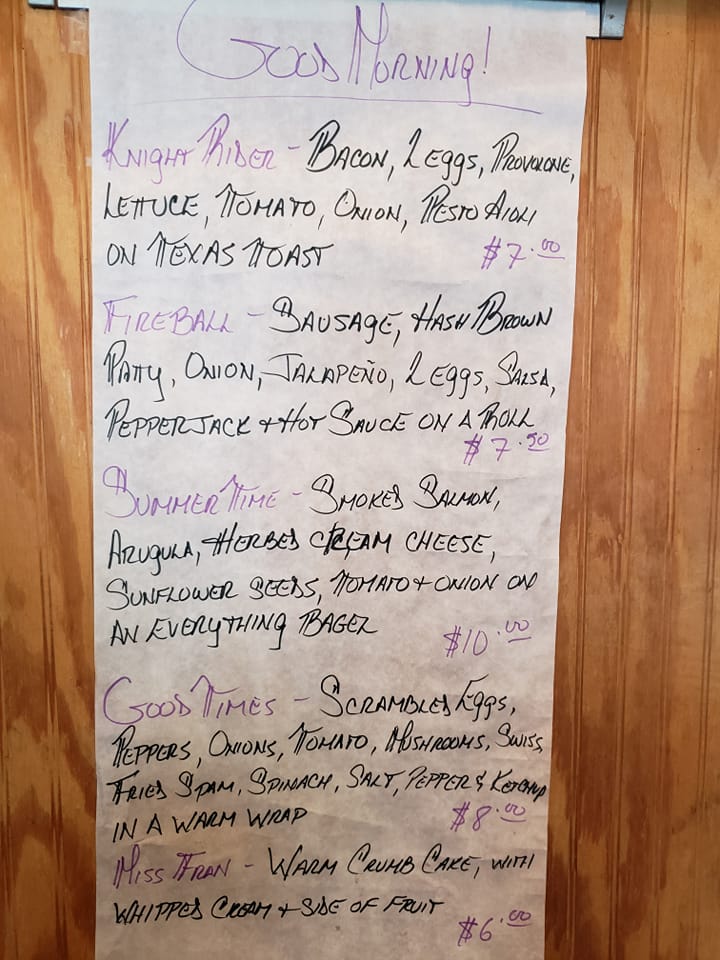 Good Morning!
Knight Rider - Bacon, 2 eggs, Provolone,
Lettuce, Tomato, Onion, Pesto Aioli
on Texas Toast $7.00
Fireball - Sausage, Hash Brown
Patty, Onion, Jalapeño, 2 eggs, Salsa,
Pepperjack + Hot Sauce on a Roll
$7.50
Summer Time - Smoked Salmon,
Arugula, Herbed cream cheese,
Sunflower seeds, Tomato + onion on
an Everything Bagel $10.00
Good Times - Scrambled Eggs,
Peppers, Onions, Tomato, Mushrooms, Swiss,
Fried Spam, Spinach, Salt, Pepper & Ketchup
in a warm wrap $8.00
Miss Fran - Warm Crumb Cake, with
Whipped Cream + side of fruit
$6.00